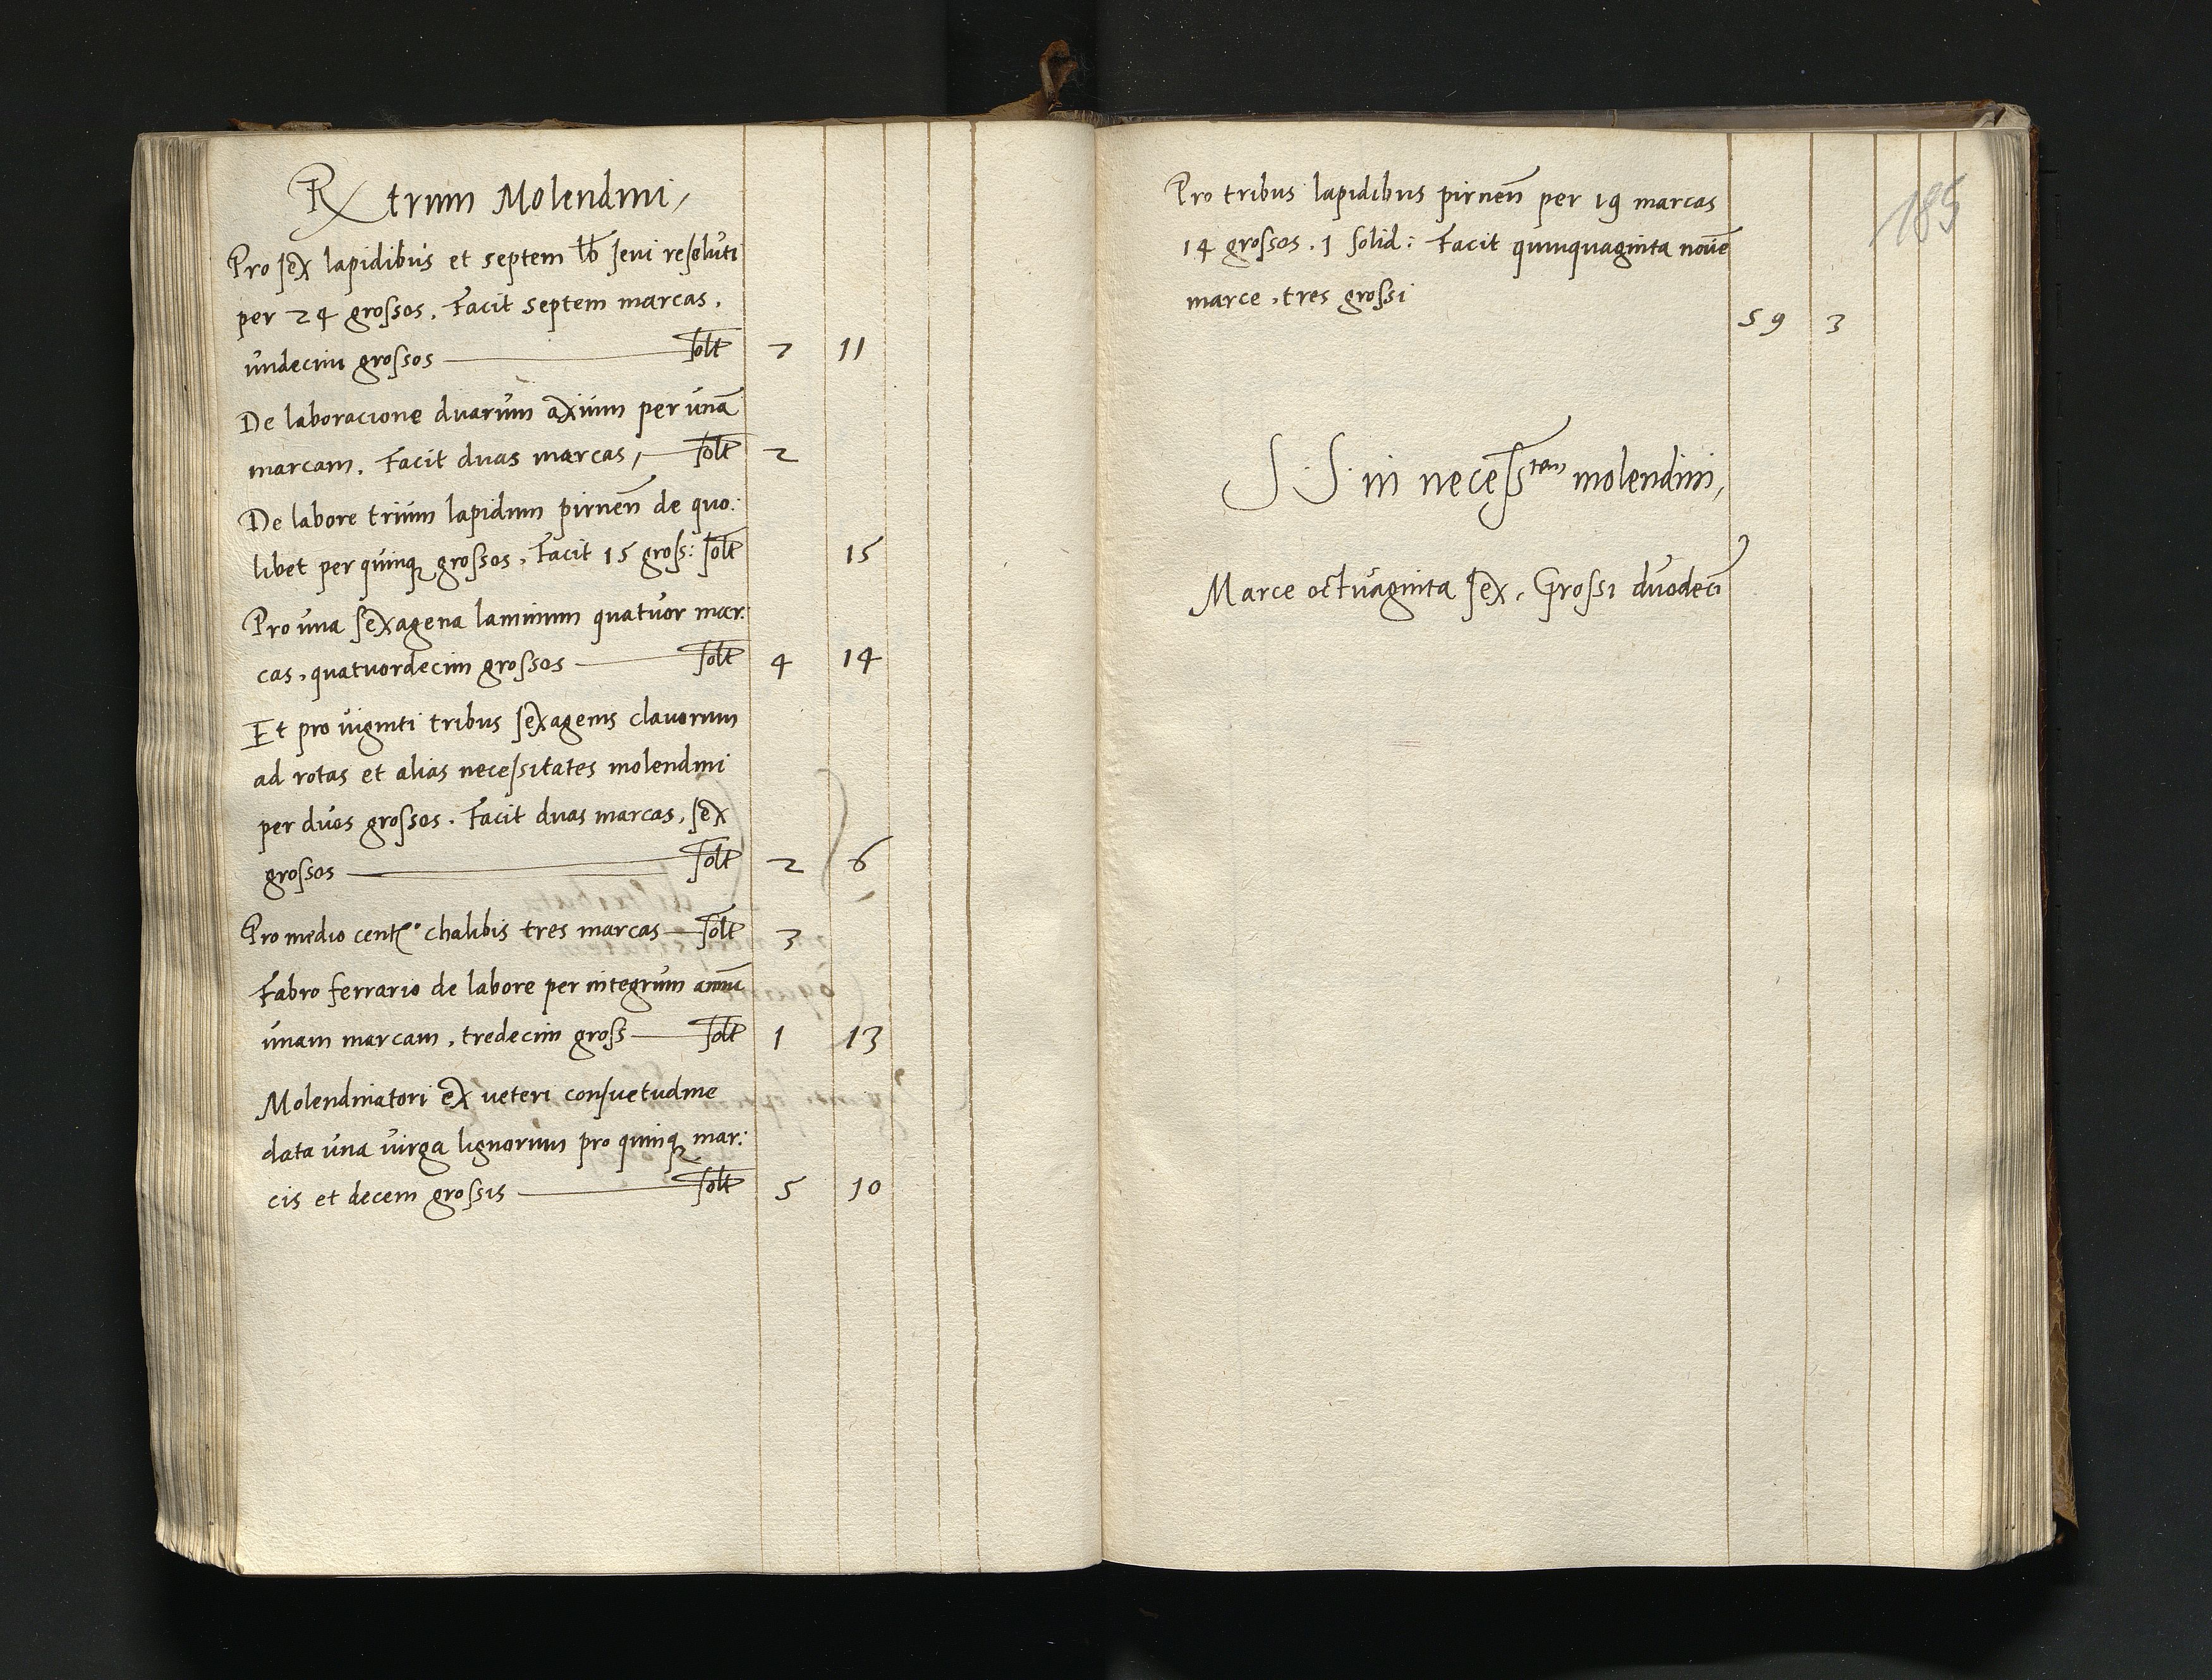 Rx trum Molendini,
Pro sex lapidibus et septem lb sevi resoluti
per 24 grossos. Facit septem marcas.
undecim grossos — solt 7 11
De laboracione duarum axium per unā
marcam. Facit duas marcas, — solt 2
De labore trium lapidum pirnen̄ de quo:
libet per quinqꝫ grossos. Facit 15 gross: solt 15
Pro una sexagena laminum quatuor mar:
cas, quatuordecim grossos — solt 4 14
Et pro viginti tribus sexagenis clavorum
ad rotas et alias necessitates molendini
per duos grossos. Facit duas marcas, sex
grossos — solt 2 6
Pro medio centr° chalibis tres marcas — solt 3
Fabro ferrario de labore per integrum annū
unam marcam, tredecim gross — solt 1 13
Molendinatori ex veteri consuetudine
data una virga lignorum pro quinqꝫ mar:
cis et decem grossis — solt 5 10
185
Pro tribus lapidibus pirnen̄ per 19 marcas
14 grossos. 1 solid: Facit quinquaginta novē
marce, tres grossi
59 3
S. S. in necess^tem molendini,
Marce octuaginta sex, Grossi duodeci